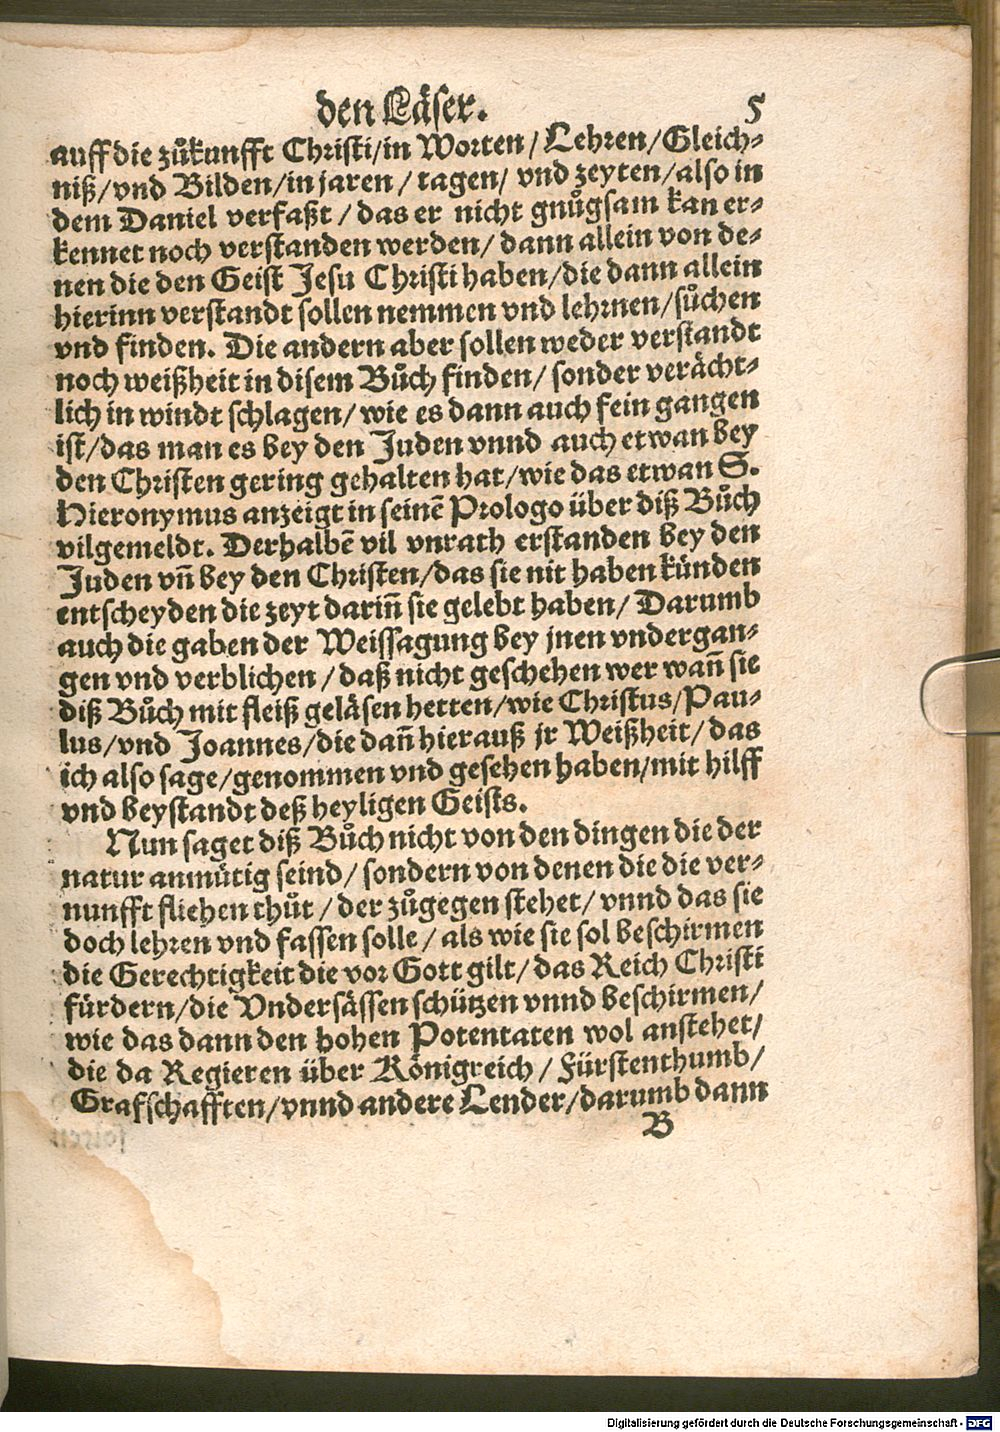 den Läser. 5
auff die zůkunfft Christi/in Worten/Lehren/Gleich⸗
niß/vnd Bilden/in jaren/tagen/vnd zeyten/also in
dem Daniel verfaßt/das er nicht gnůgsam kan er⸗
kennet noch verstanden werden/dann allein von de⸗
nen die den Geist Jesu Christi haben/die dann allein
hierinn verstandt sollen nemmen vnd lehrnen/sůchen
vnd finden. Die andern aber sollen weder verstandt
noch weißheit in disem Bůch finden/sonder verächt⸗
lich in windt schlagen/wie es dann auch fein gangen
ist/das man es bey den Juden vnnd auch etwan bey
den Christen gering gehalten hat/wie das etwan S.
Hieronymus anzeigt in seinē Prologo über diß Bůch
vilgemeldt. Derhalbē vil vnrath erstanden bey den
Juden vñ bey den Christen/das sie nit haben künden
entscheyden die zeyt dariñ sie gelebt haben/Darumb
auch die gaben der Weissagung bey jnen vndergan⸗
gen vnd verblichen/daß nicht geschehen wer wañ sie
diß Bůch mit fleiß geläsen hetten/wie Christus/Pau⸗
lus/vnd Joannes/die dañ hierauß jr Weißheit/das
ich also sage/genommen vnd gesehen haben/mit hilff
vnd beystandt deß heyligen Geists.
Nun saget diß Bůch nicht von den dingen die der
natur anmůtig seind/sondern von denen die die ver⸗
nunfft fliehen thůt/der zůgegen stehet/vnnd das sie
doch lehren vnd fassen solle/als wie sie sol beschirmen
die Gerechtigkeit die vor Gott gilt/das Reich Christi
fürdern/die Vndersässen schützen vnnd beschirmen/
wie das dann den hohen Potentaten wol anstehet/
die da Regieren über Königreich/Fürstenthumb/
Grafschafften/vnnd andere Lender/darumb dann
B
Digitalisierung gefördert durch die Deutsche Forschungsgemeinschaft - DFG